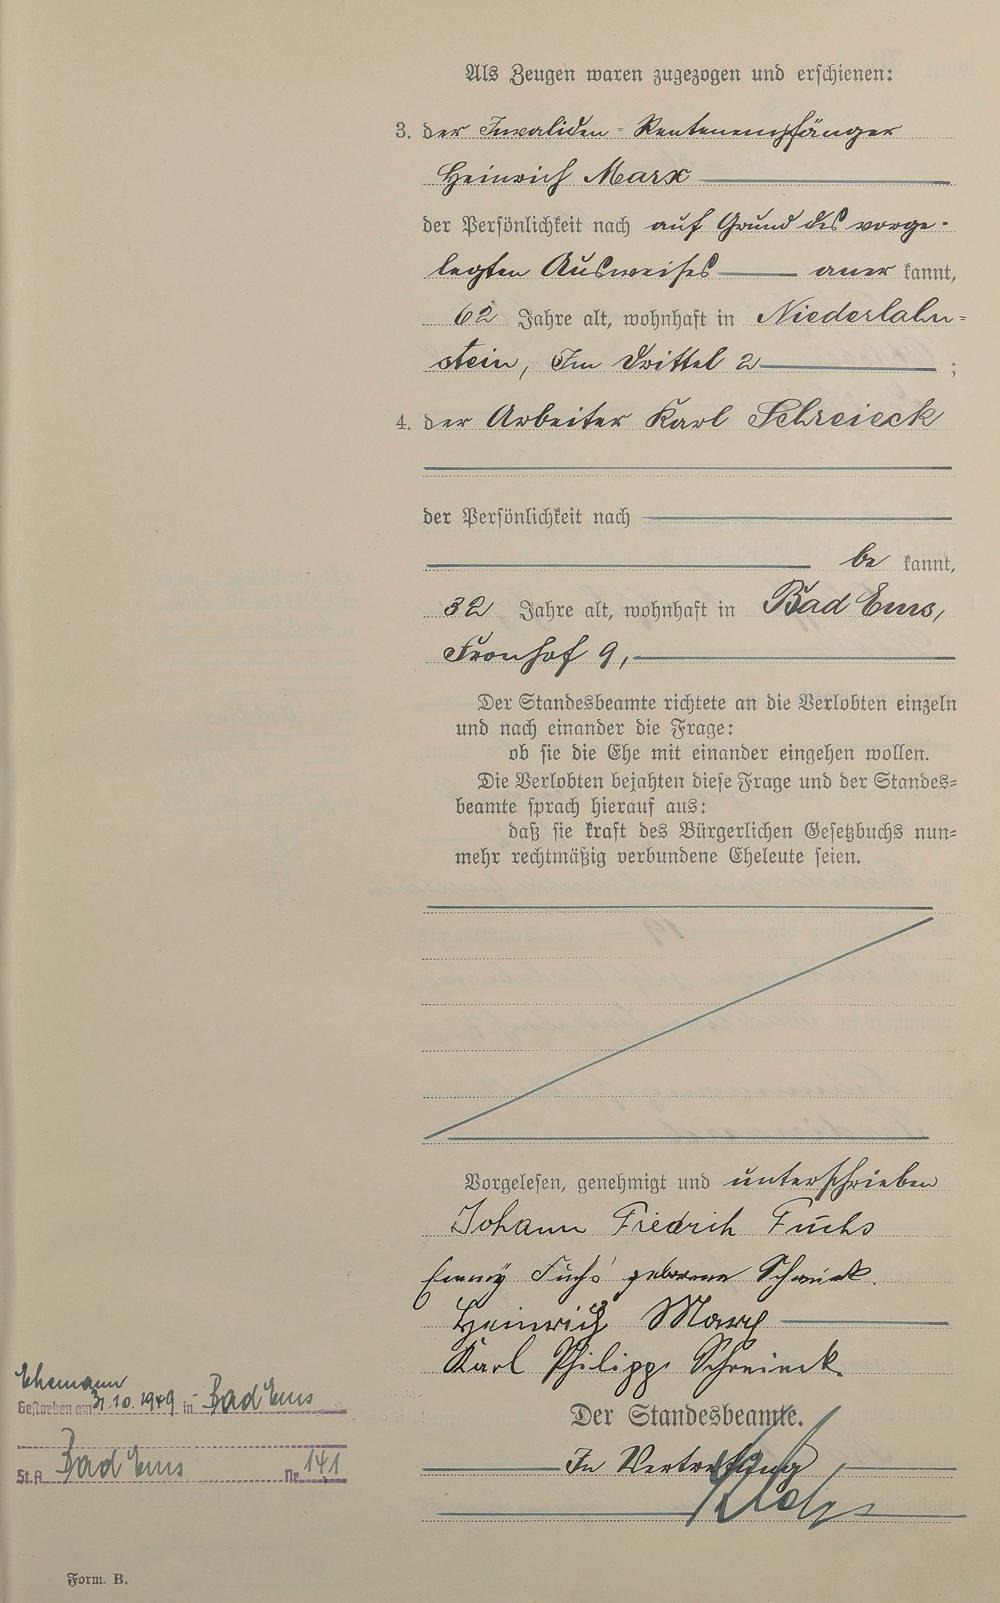 Als Zeugen waren zugezogen und erschienen:
3. der Invaliden-Rentenempfänger
Heinrich Marx
der Persönlichkeit nach auf Grund des vorge-
legten Ausweises aner kannt,
62 Jahre alt, wohnhaft in Niederlahn-
stein, Im Drittel 2 ;
4. der Arbeiter Karl Schreieck
der Persönlichkeit nach
be kannt,
32 Jahre alt, wohnhaft in Bad Ems,
Fronhof 9,
Der Standesbeamte richtete an die Verlobten einzeln
und nach einander die Frage:
ob sie die Ehe mit einander eingehen wollen.
Die Verlobten bejahten diese Frage und der Standes-
beamte sprach hierauf aus:
daß sie kraft des Bürgerlichen Gesetzbuchs nun-
mehr rechtmäßig verbundene Eheleute seien.
Vorgelesen, genehmigt und unterschrieben
Johann Friedrich Fuchs
Emmy Fuchs geborene Schreieck.
Heinrich Marx
Karl Philipp Schreieck.
Der Standesbeamte.
In Vertretung
Ehemann
Gestorben am 31.10.1949 in Bad Ems
St.A. Bad Ems Nr. 141
Form. B.